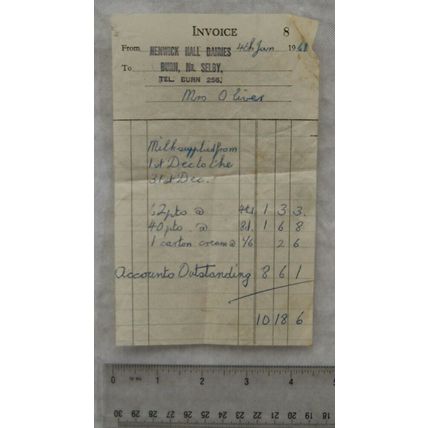 INVOICE 8
From HENWICK HALL DAIRIES 4th Jan 1961
To BURN, Nr. SELBY,
TEL. BURN 256.
Mrs Oliver
Milk supplied from
1st Dec to the
31st Dec.
62 pts @ 4½d 1 3 3.
40 pts @ 8d 1 6 8
1 carton cream @ 2/6 2 6
Accounts Outstanding 8 6 1
10 18 6
0 1 2 3 4 5
30 29 28 27 26 25 24 23 22 21 20 19 18